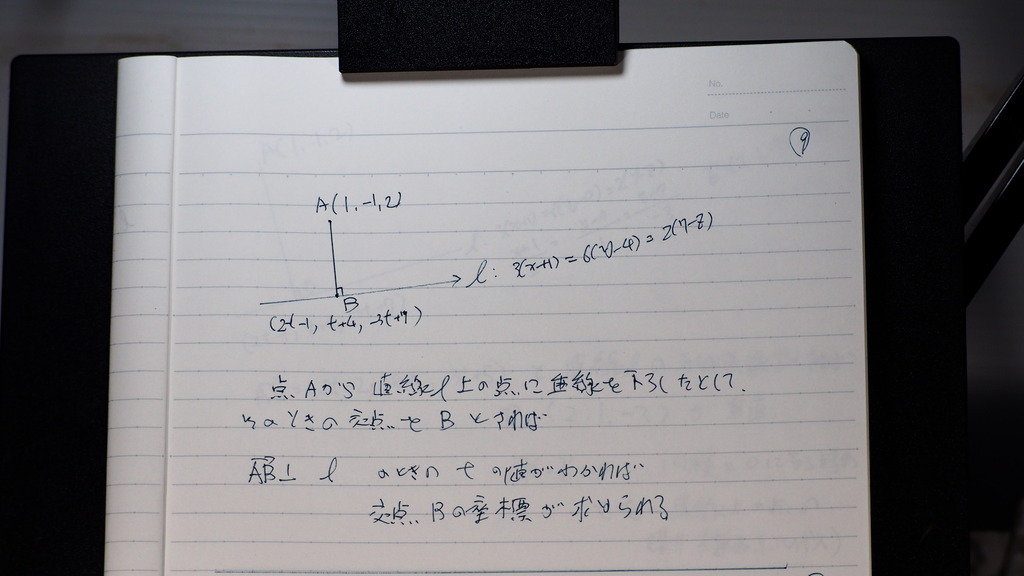 No.
Date
⑨
A(1,-1,2)
l: 3(x+1)=6(y-4)=2(7-z)
B
(2t-1, t+4, -3t+7)
点Aから直線l上の点に垂線を下ろしたとして、
そのときの交点をBとすれば
AB⊥ l のときの tの値がわかれば
交点Bの座標が求められる